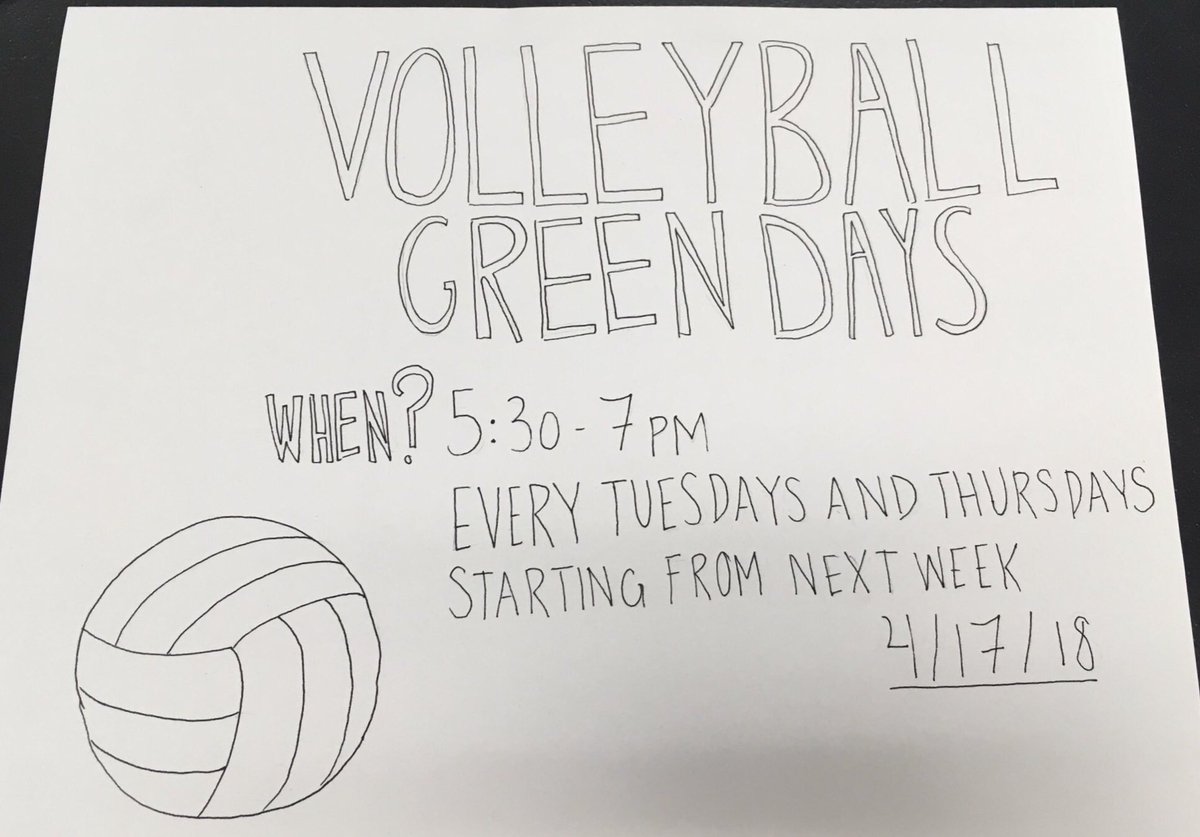 VOLLEYBALL
GREEN DAYS
WHEN? 5:30 - 7PM
EVERY TUESDAYS AND THURSDAYS
STARTING FROM NEXT WEEK
4/17/18